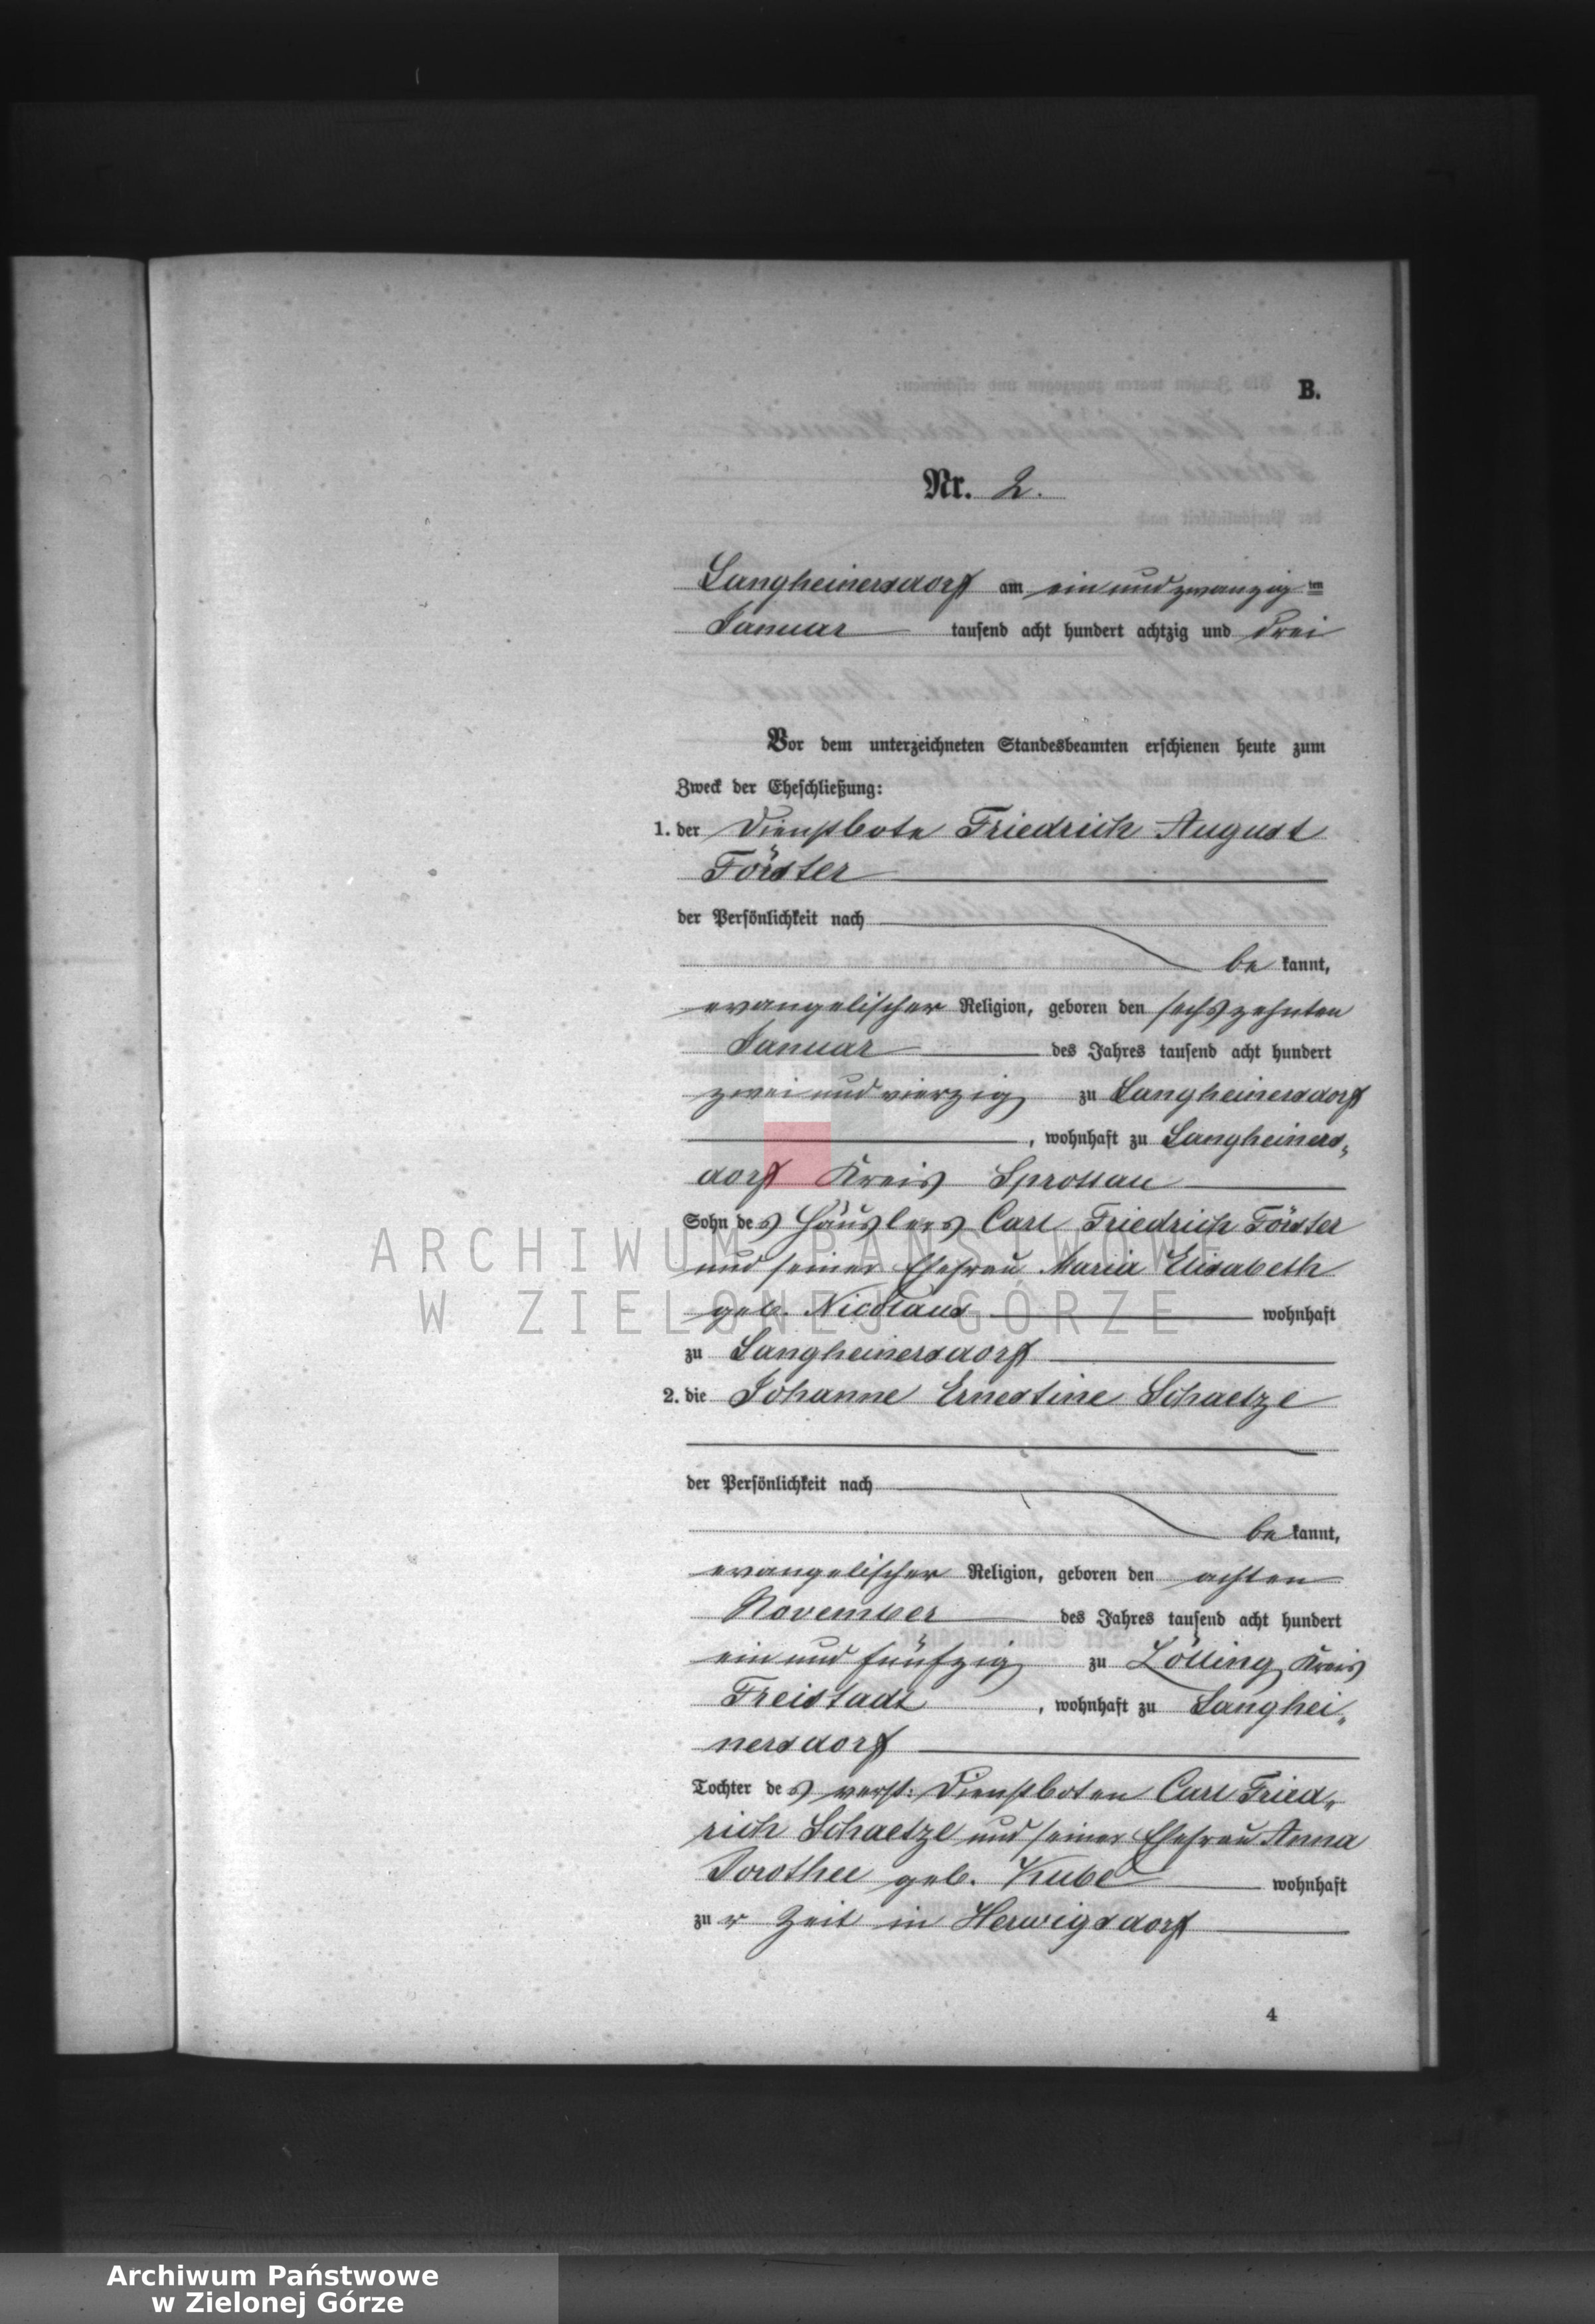 B.
Nr. 2.
Langheinersdorf am ein und zwanzig ten
Januar tausend acht hundert achtzig und drei
Vor dem unterzeichneten Standesbeamten erschienen heute zum
Zweck der Eheschließung:
1. der Dienstbote Friedrich August
Förster
der Persönlichkeit nach
be kannt,
evangelischer Religion, geboren den sechszehnten
Januar des Jahres tausend acht hundert
zwei und vierzig zu Langheinersdorf
, wohnhaft zu Langheiners„
dorf Kreis Sprottau
Sohn des Häuslers Carl Friedrich Förster
und seiner Ehefrau Maria Elisabeth
geb. Nicolaus wohnhaft
zu Langheinersdorf
2. die Johanne Ernestine Schaetze
der Persönlichkeit nach
be kannt,
evangelischer Religion, geboren den achten
November des Jahres tausend acht hundert
ein und fünfzig zu Zölling Kreis
Freistadt, wohnhaft zu Langhei„
nersdorf
Tochter des verst. Dienstboten Carl Fried„
rich Schaetze und seiner Ehefrau Anna
Dorothee geb. Kube wohnhaft
zu r Zeit in Herwigsdorf
4
ARCHIWUM PAŃSTWOWE
W ZIELONEJ GÓRZE
Archiwum Państwowe
w Zielonej Górze